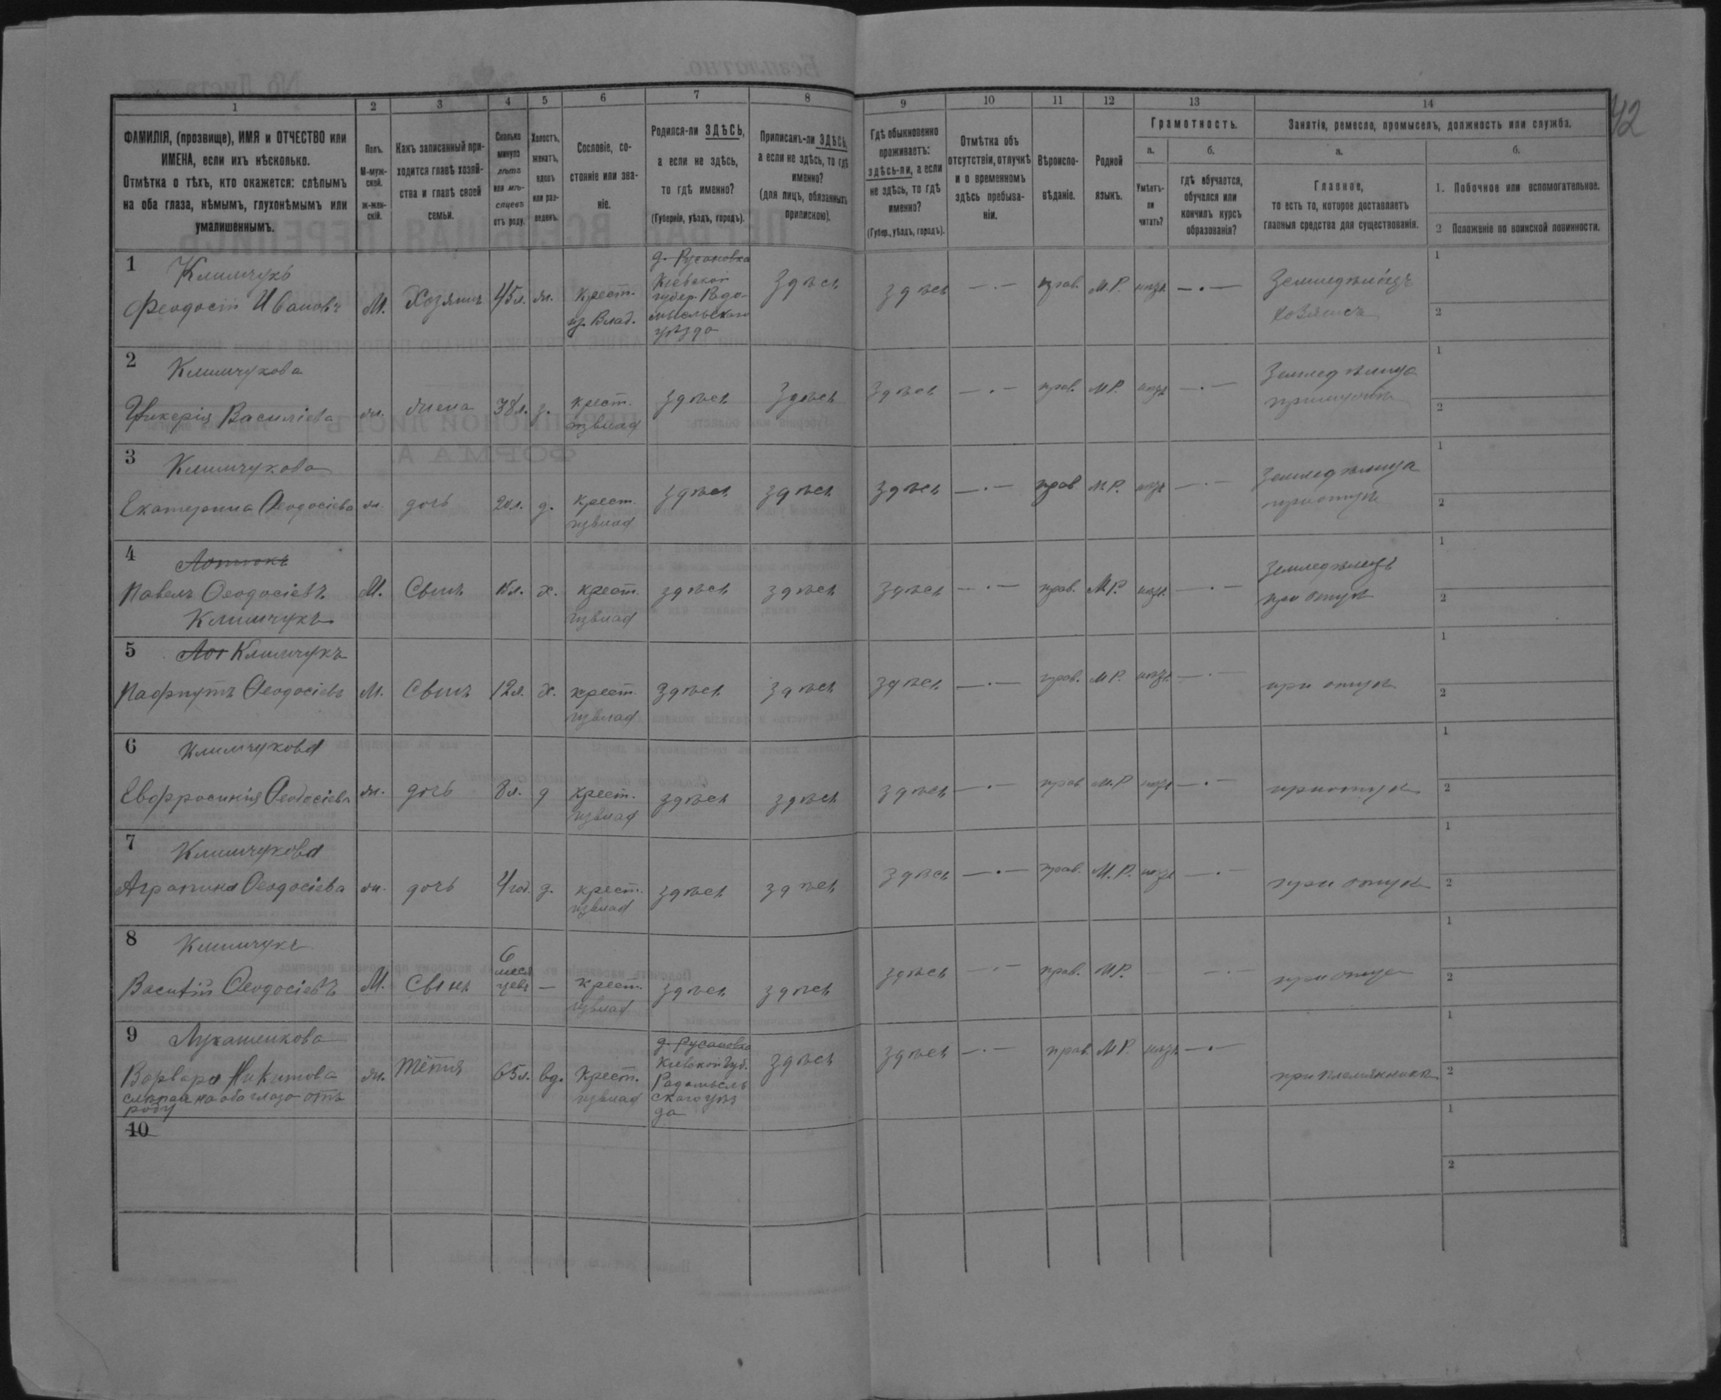 Безплатно.
№ Листа
42
1 2 3 4 5 6 7 8 9 10 11 12 13 14
ФАМИЛІЯ, (прозвище), ИМЯ и ОТЧЕСТВО или
ИМЕНА, если ихъ нѣсколько.
Отмѣтка о тѣхъ, кто окажется: слѣпымъ
на оба глаза, нѣмымъ, глухонѣмымъ или
умалишеннымъ.
Полъ.
М-муж-
ской.
ж-жен-
скій.
Какъ записанный при-
ходится главѣ хозяй-
ства и главѣ своей
семьи.
Сколько
минуло
лѣтъ
или мѣ-
сяцевъ
отъ роду.
Холостъ,
женатъ,
вдовъ
или раз-
веденъ.
Сословіе, со-
стояніе или зва-
ніе.
Родился-ли ЗДѢСЬ,
а если не здѣсь,
то гдѣ именно?
(Губернія, уѣздъ, городъ).
Приписанъ-ли ЗДѢСЬ,
а если не здѣсь, то гдѣ
именно?
(для лицъ, обязанныхъ
припискою).
Гдѣ обыкновенно
проживаетъ:
здѣсь-ли, а если
не здѣсь, то гдѣ
именно?
(Губер., уѣздъ, городъ).
Отмѣтка объ
отсутствіи, отлучкѣ
и о временномъ
здѣсь пребыва-
ніи.
Вѣроиспо-
вѣданіе.
Родной
языкъ.
Грамотность.
а.
Умѣетъ-
ли
читать?
б.
гдѣ обучается,
обучался или
кончилъ курсъ
образованія?
Занятіе, ремесло, промыселъ, должность или служба.
а.
Главное,
то есть то, которое доставляетъ
главныя средства для существованія.
б.
1. Побочное или вспомогательное.
2 Положеніе по воинской повинности.
1 Климчукъ
Феодосій Ивановъ М. Хозяинъ 45л. жн. крест. из. Влад.
д. Русановка
Кіевской
губер. Радо-
мысльскаго
уѣзда
здѣсь здѣсь — · — прав. М.Р. — · — Земледѣлецъ
хозяинъ
2 Климчукова
Гликерія Василіева жн. жена 38л. з. крест.
извлад
здѣсь здѣсь здѣсь — · — прав. М.Р. — · — Земледѣлица
3 Климчукова
Екатерина Феодосіева жн. дочь 20л. д. крест.
извлад
здѣсь здѣсь здѣсь — · — прав М.Р. — · — Земледѣлица
при отцѣ
4
Павелъ Феодосіевъ М. Сынъ 15л. х. крест.
извлад
здѣсь здѣсь здѣсь — · — прав. М.Р. — · — Земледѣлецъ
при отцѣ
Климчукъ
5 Климчукъ
Пафнутъ Феодосіевъ М. Сынъ 12л. х. крест.
извлад
здѣсь здѣсь здѣсь — · — прав. М.Р. — · — при отцѣ
6 Климчукова
Евфросинія Феодосіева жн. дочь 8л. д крест.
извлад
здѣсь здѣсь здѣсь — · — прав М.Р — · — при отцѣ
7 Климчукова
Агрипина Феодосіева жн. дочь 4 год. д. крест.
извлад
здѣсь здѣсь здѣсь — · — прав. М.Р. — · — при отцѣ
8 Климчукъ
Василій Феодосіевъ М. Сынъ 6
меся
цевъ — крест.
извлад
здѣсь здѣсь здѣсь — · — прав. М.Р. — · — при отцѣ
9 Лукашенкова
Варвара Никитова
слѣпая на оба глаза отъ
роду
жн. тётка 65л. вд. Крест.
извлад
д. Русановка
Кіевской Губ.
Радомысль
скаго уѣз
да
здѣсь здѣсь — · — прав М.Р. — · — при племянникѣ
10